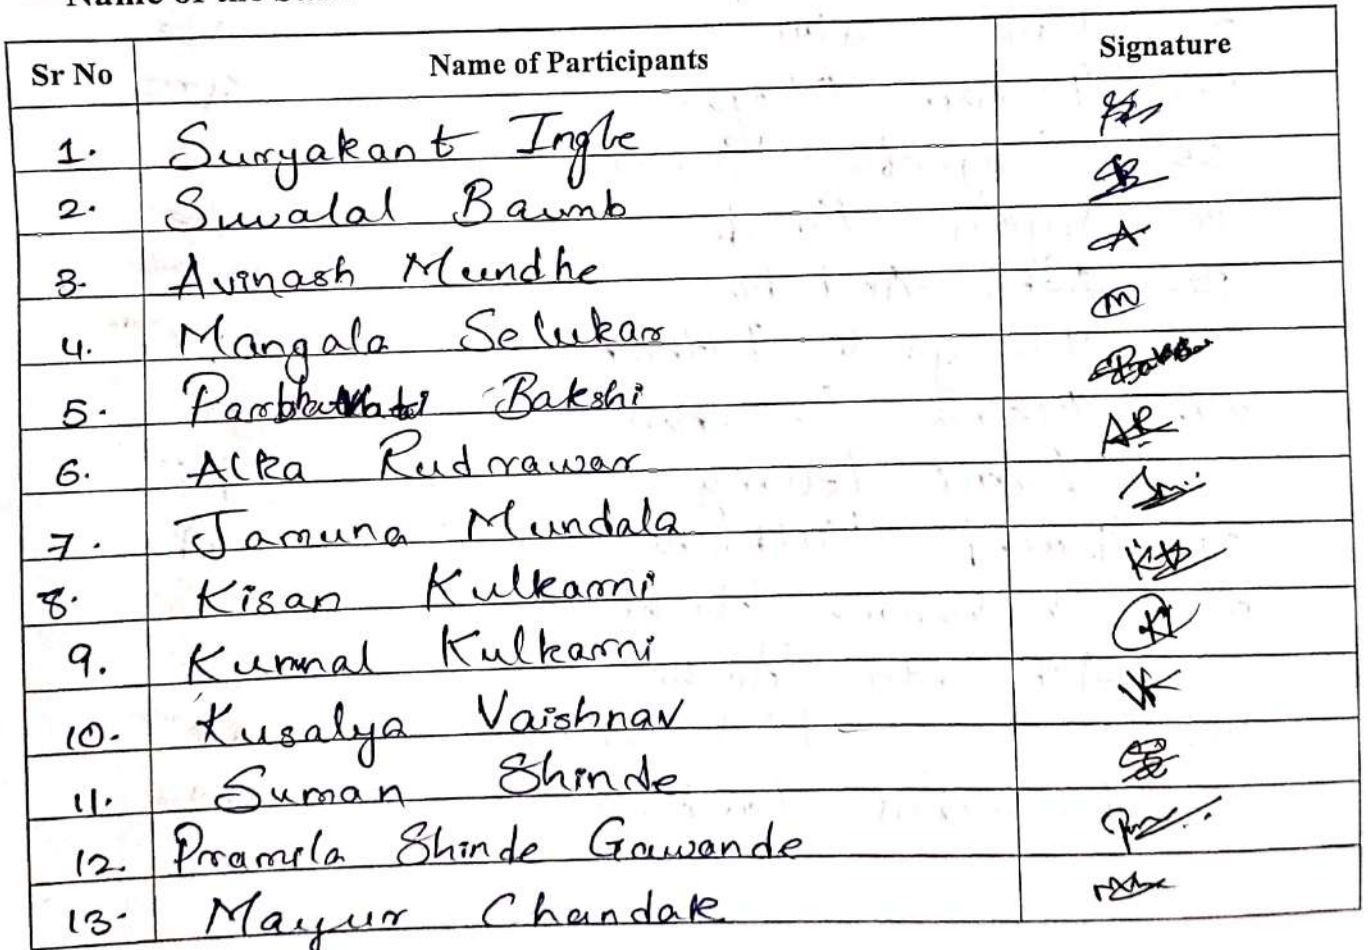 Sr No Name of Participants Signature
1. Suryakant Ingle
2. Suvalal Baumb
3. Avinash Mundhe
4. Mangala Selukar
5. Bakshi
6. Alka Rudrawar AR
7. Jamuna Mundala
8. Kisan Kulkarni
9. Kunnal Kulkarni
10. Kusalya Vaishnav VK
11. Suman Shinde
12. Pramila Shinde Gawande
13. Mayur Chandak